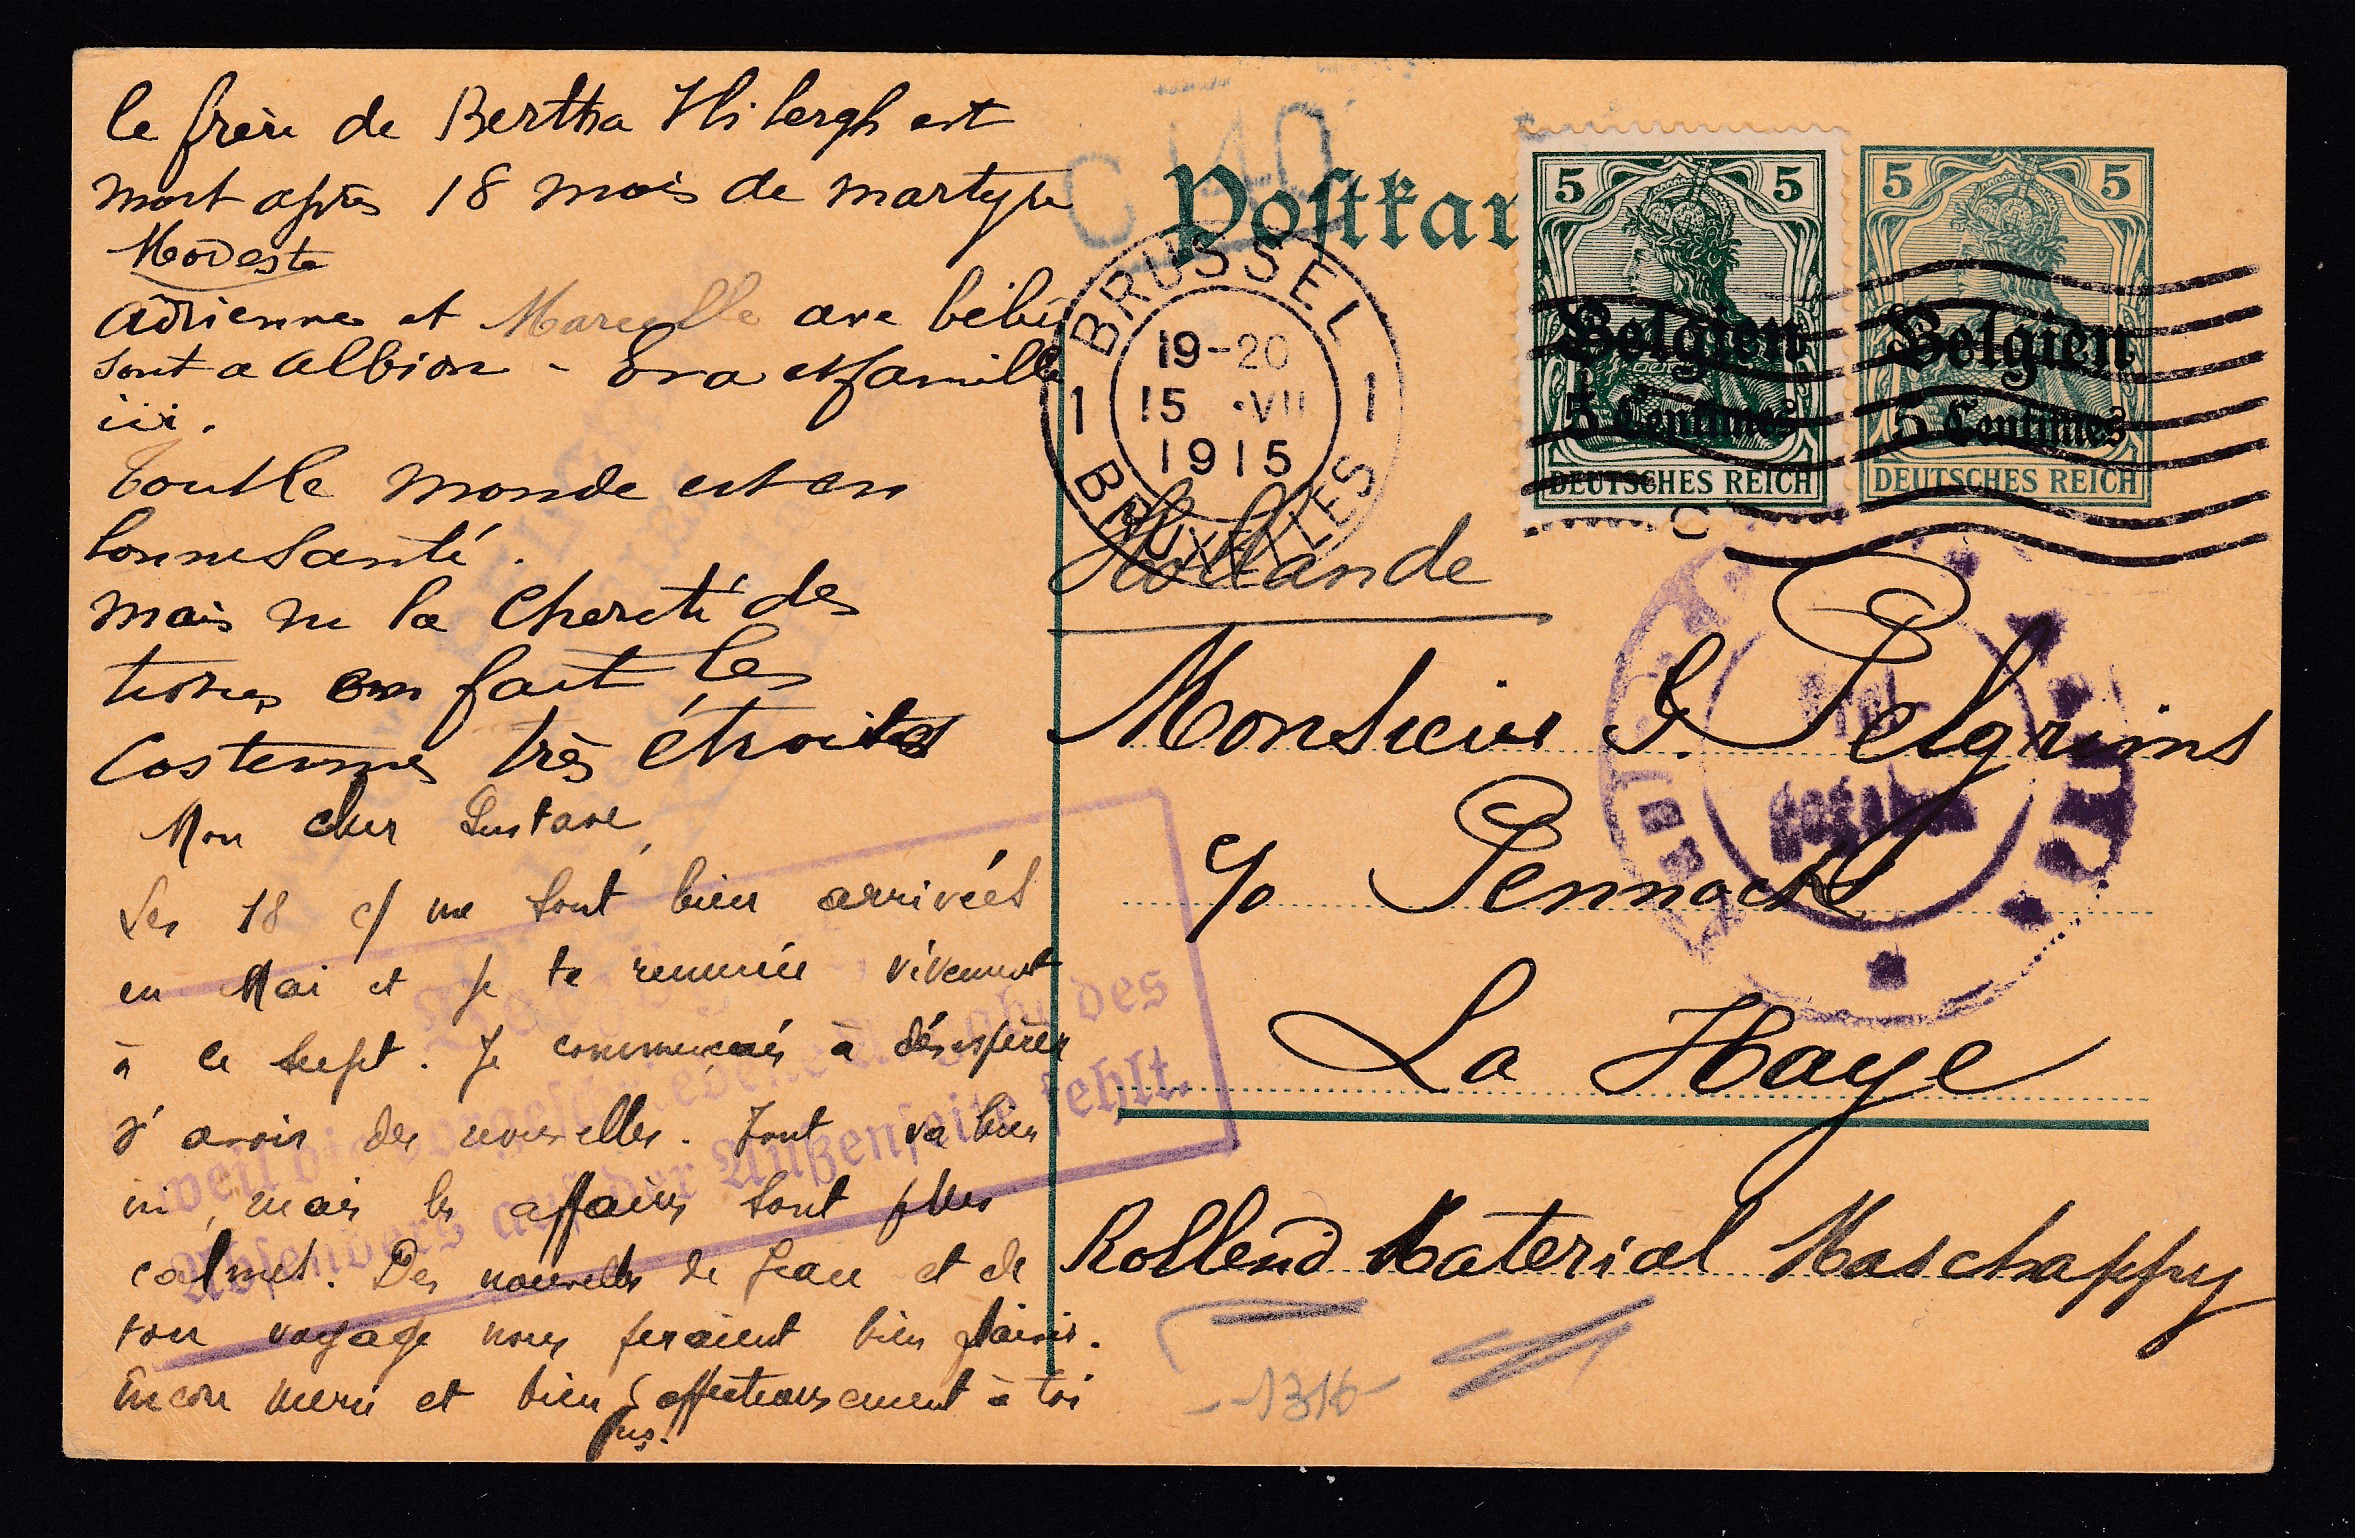 le frère de Bertha est
mort après 18 mois de martyre
Modeste
Adrienne et Marcelle ave bébé
sont a Albion - Eva et famille
ici.
Tout le monde est en
bonne santé.
mais vu la Chereté des
tissus on fait les
costumes très étroites
Mon cher Gustave,
Les 18 c/ me sont bien arrivées
en Mai et je te remercie vivement
à ce sujet. Je commençais à désespérer
d'avoir des nouvelles. Tout va bien
ici, mais les affaires sont plus
calmes. Des nouvelles de Jean et de
ton voyage nous feraient bien plaisir.
Encore merci et bien affectueusement à toi
Postkar
C 140
BRUSSEL
19-20
15 ·VII
1915
1 1
BRUXELLES
5 5
Belgien
5 Centimes
DEUTSCHES REICH
5 5
Belgien
5 Centimes
DEUTSCHES REICH
Hollande
Monsieur G. Pelgrims
c/o Pennock
La Haye
Rollend Material Maschappy
weil die vorgeschriebene Angabe des
Absenders auf der Außenseite fehlt.